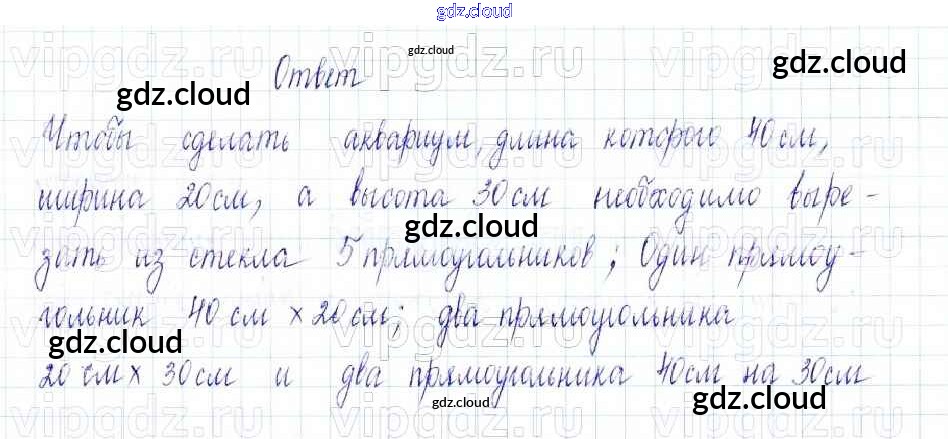 gdz.cloud
gdz.cloud
Ответ
gdz.cloud
gdz.cloud
vipgdz.ru
Чтобы сделать аквариум, длина которого 40 см,
ширина 20 см, а высота 30 см необходимо выре-
gdz.cloud
зать из стекла 5 прямоугольников; Один прямоу-
гольник 40 см х 20 см; два прямоугольника
gdz.cloud
20 см х 30 см и два прямоугольника 40 см на 30 см
gdz.cloud
gdz.cloud